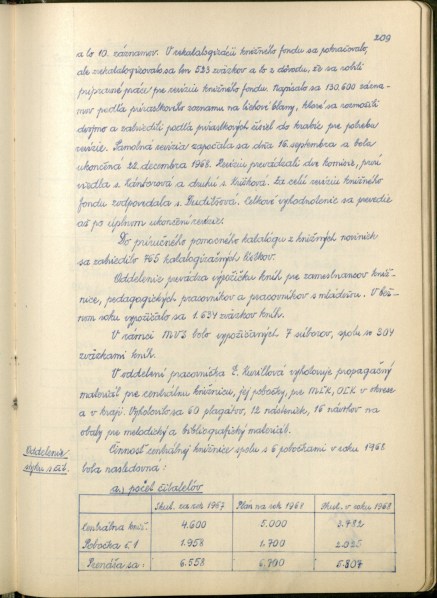 209
a to 10. záznamov. V rekatalogizácii knižného fondu sa pokračovalo,
ale zrekatalogizovalo sa len 523 zväzkov a to z dôvodu, že sa robili
prípravné práce pre revíziu knižného fondu. Napísalo sa 130.600 zázna-
mov podľa prírastkového zoznamu na liehové blany, ktoré sa rozmnožili
dvojmo a zatriedili podľa prírastkových čísiel do krabíc pre potrebu
revízie. Samotná revízia započala sa dňa 16. septembra a bola
ukončená 22. decembra 1968. Revíziu prevádzali dve komisie, prvú
viedla s. a druhú s. Krušková. Za celú revíziu knižného
fondu zodpovedala s. Celkové vyhodnotenie sa prevedie
až po úplnom ukončení revízie.
Do príručného pomocného katalógu z knižných noviniek
sa zatriedilo 765 katalogizačných lístkov.
Oddelenie prevádza výpožičku kníh pre zamestnancov kniž-
nice, pedagogických pracovníkov a pracovníkov s mládežou. V bež-
nom roku vypožičalo sa 1.634 zväzkov kníh.
V rámci MVS bolo vypožičaných 7 súborov, spolu so 304
zväzkami kníh.
V oddelení pracovníčka vyhotovuje propagačný
materiál pre centrálnu knižnicu, jej pobočky, pre MĽK, OĽK v okrese
a v kraji. Vyhotovilo sa 60 plagátov, 12 násteniek, 16 návrhov na
obaly pre metodický a bibliografický materiál.
Oddelenie
styku s čit.
Činnosť centrálnej knižnice spolu s 6 pobočkami v roku 1968
bola nasledovná:
a./ počet čitateľov
Skut. za rok 1967 Plán na rok 1968 Skut. v roku 1968
Centrálna kniž. 4.600 5.000 3.782
Pobočka č. 1 1.958 1.700 2.025
Prenáša sa: 6.558 6.700 5.807